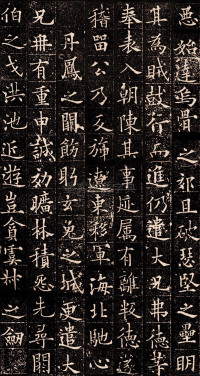 惡始達烏骨之郊且破瑟堅之壘明
其為賊鼓行而進仍遣大兄弗德等
奉表入朝陳其事迹屬有離叛德遂
稽留公乃反旆遼東移軍海北馳心
丹鳳之闕飭躬玄菟之城更遣大
兄冉有重申誠効曠林積怨先尋閼
伯之戈洪池近遊豈貪虞叔之劍